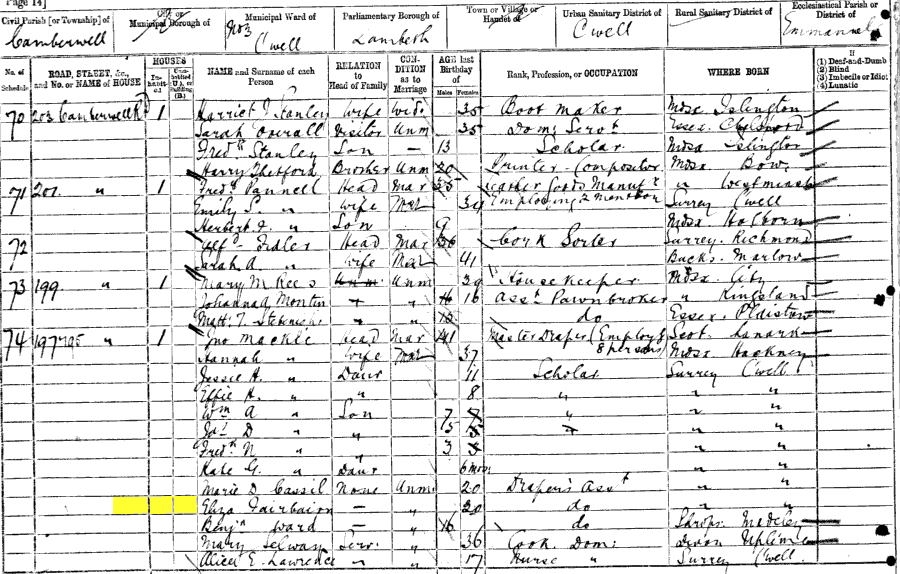 Page 14]
Civil Parish [or Township] of Camberwell
City or Municipal Borough of
Municipal Ward of No 3 C'well
Parliamentary Borough of Lambeth
Town or Village or Hamlet of
Urban Sanitary District of C'well
Rural Sanitary District of
Ecclesiastical Parish or District of Emmanuel
No. of Schedule
ROAD, STREET, &c., and No. or NAME of HOUSE
HOUSES
NAME and Surname of each Person
RELATION to Head of Family
CONDITION as to Marriage
AGE last Birthday of
Males Females
Rank, Profession, or OCCUPATION
WHERE BORN
If
(1) Deaf-and-Dumb
(2) Blind
(3) Imbecile or Idiot
(4) Lunatic
70 203 Camberwell Rd 1 Harriet J Stanley Wife Wid. 35 Boot Maker Midsx Islington
Sarah Overall Visitor Unm 35 Dom: Servt Essex
Fredk Stanley Son — 13 Scholar Midsx Islington
Harry Thetford Brother Unm 20 Printer - Compositor Midsx Bow
71 201 " 1 Fredk Pannell Head Mar 35 Leather Goods Manufr "
Emily S. " Wife Mar 34 Employing 2 men Surrey C'well
Herbert J. " Son 9 Midsx Holborn
72 Alfd Fidler Head Mar 36 Cork Sorter Surrey. Richmond
Sarah A " Wife Mar 41 Bucks. Marlow
73 199 " 1 Mary M Rees Unm 39 Housekeeper Midsx City
Johanna Montin " 16 Asst Pawnbroker " Kingsland
Matt. T. " " do Essex. Plaistow
74 197 & 195 " 1 Jno Mackie Head Mar 41 Master Draper (Employg 8 persons) Scot. Lanark
Hannah " Wife Mar 37 Midsx Hackney
Jessie H. " Daur 11 Scholar Surrey C'well
Effie H. " " 8 " " "
Wm A " Son 7 " " "
Jas D " " 5 " "
Fredk N " " 3 " "
Kate G. " Daur 6 mos " "
Marie D Cassil None Unm 20 Draper's Asst " "
Eliza Fairbairn — " 20 do " "
Benjn Ward — " 16 do Shrops. Madeley
Mary Selway Serv. " 36 Cook Dom: Devon Uplime
Alice E. Lawrence " " 17 Nurse " Surrey C'well